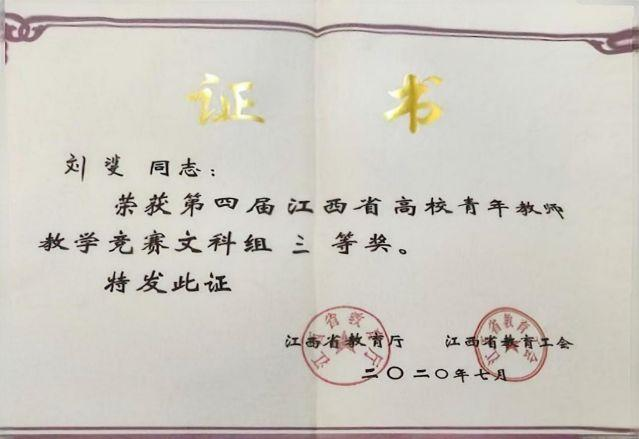 证 书
刘斐 同志：
荣获第四届江西省高校青年教师
教学竞赛文科组 三 等奖。
特发此证
江西省教育厅 江西省教育工会
二〇二〇年七月
江西省教育厅
江西省教育工会